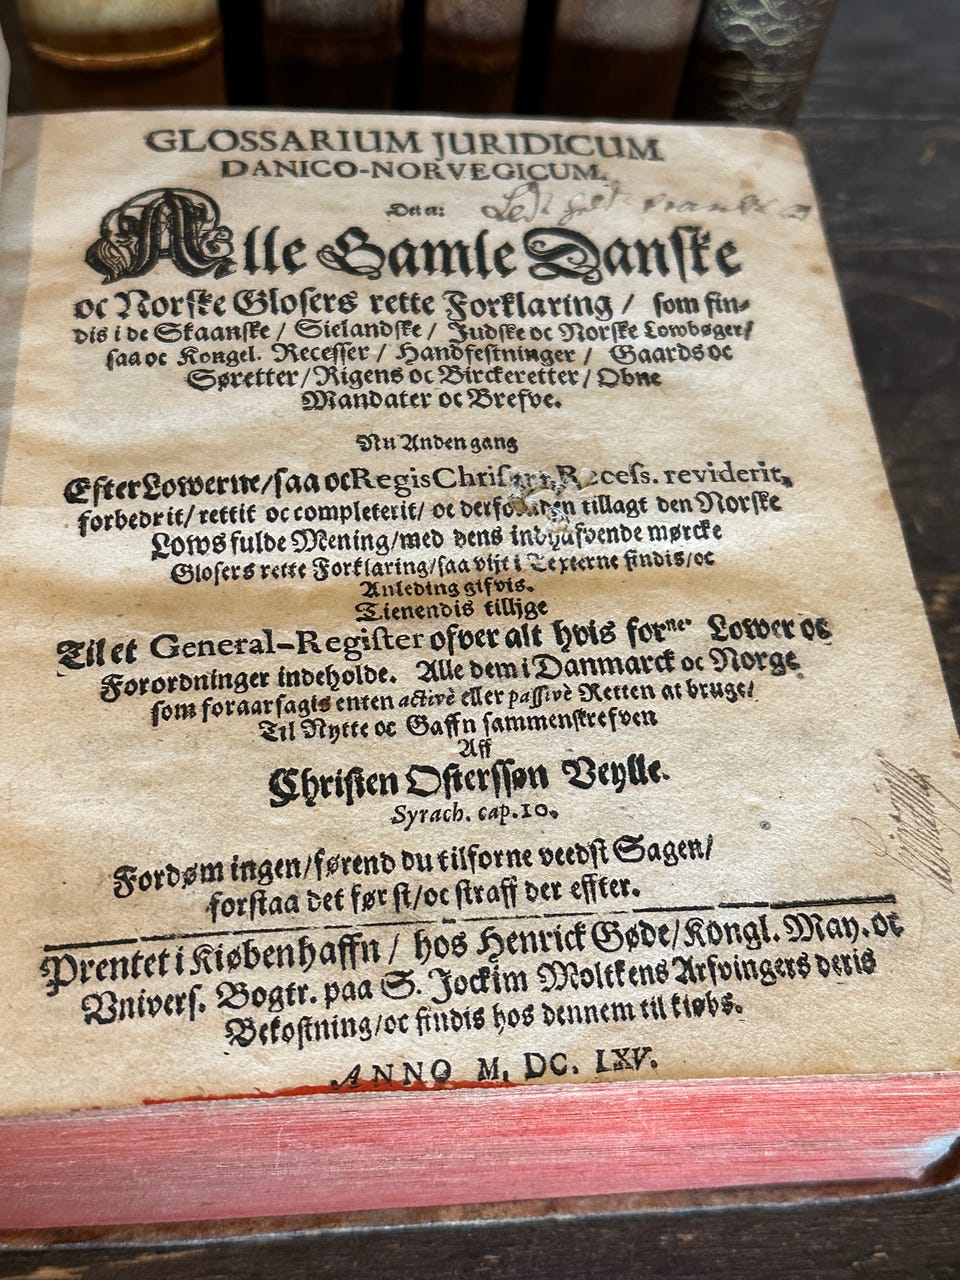 GLOSSARIUM JURIDICUM
DANICO-NORVEGICUM.
Det er:
Alle Gamle Danske
oc Norske Glosers rette Forklaring / som fin-
dis i de Skaanske / Sielandske / Judske oc Norske Lowbøger/
saa oc Kongel. Recesser / Handfestninger / Gaards oc
Søretter/Rigens oc Birckeretter/ Obne
Mandater oc Brefve.
Nu Anden gang
Efter Lowerne/saa oc Regis Recess. reviderit,
forbedrit/ rettit oc completerit/ oc tillagt den Norske
Lows fulde Mening/med dens indhafvende mørcke
Glosers rette Forklaring/saa vijt i Texterne findis/oc
Anleding gifvis.
Tienendis tillige
Til et General-Register ofver alt hvis forne. Lower oc
Forordninger indeholde. Alle dem i Danmarck oc Norge
som foraarsagis enten activè eller passivè Retten at bruge/
Til Nytte oc Gaffn sammenskrefven
Aff
Christen Osterssøn Veylle.
Syrach. cap.10.
Fordøm ingen/førend du tilforne veedst Sagen/
forstaa det først/oc straff der effter.
Prentet i Kiøbenhaffn / hos Henrick Gøde/Kongl. May. oc
Univers. Bogtr. paa S. Jockim Moltkens Arfvingers deris
Bekostning/oc findis hos dennem til kiøbs.
ANNO M. DC. LXV.